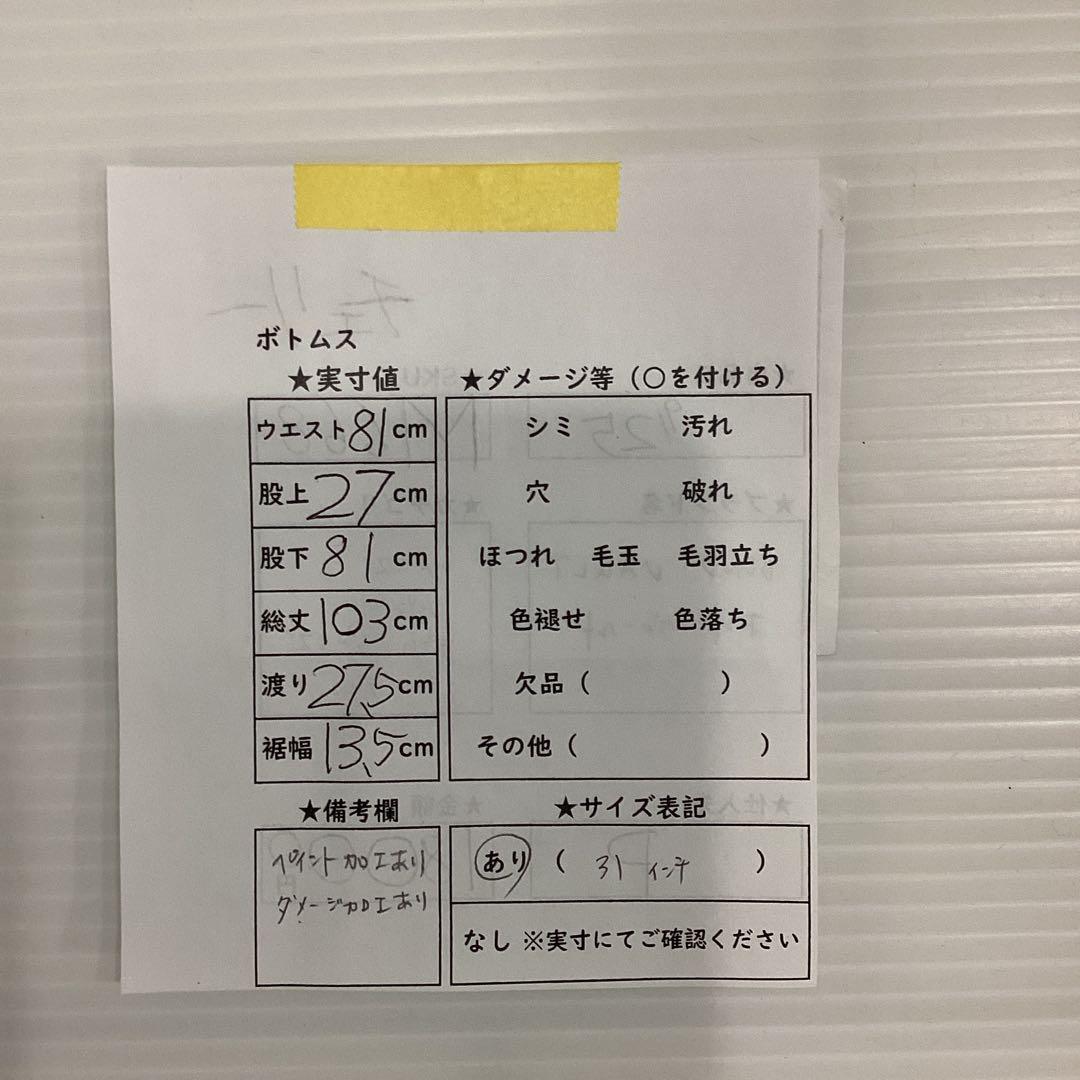 チェリー
ボトムス
★実寸値
ウエスト81cm
股上27cm
股下81cm
総丈103cm
渡り27.5cm
裾幅13.5cm
★ダメージ等（○を付ける）
シミ 汚れ
穴 破れ
ほつれ 毛玉 毛羽立ち
色褪せ 色落ち
欠品（ ）
その他（ ）
★備考欄
ペイント加工あり
ダメージ加工あり
★サイズ表記
あり（ 31インチ ）
なし ※実寸にてご確認ください